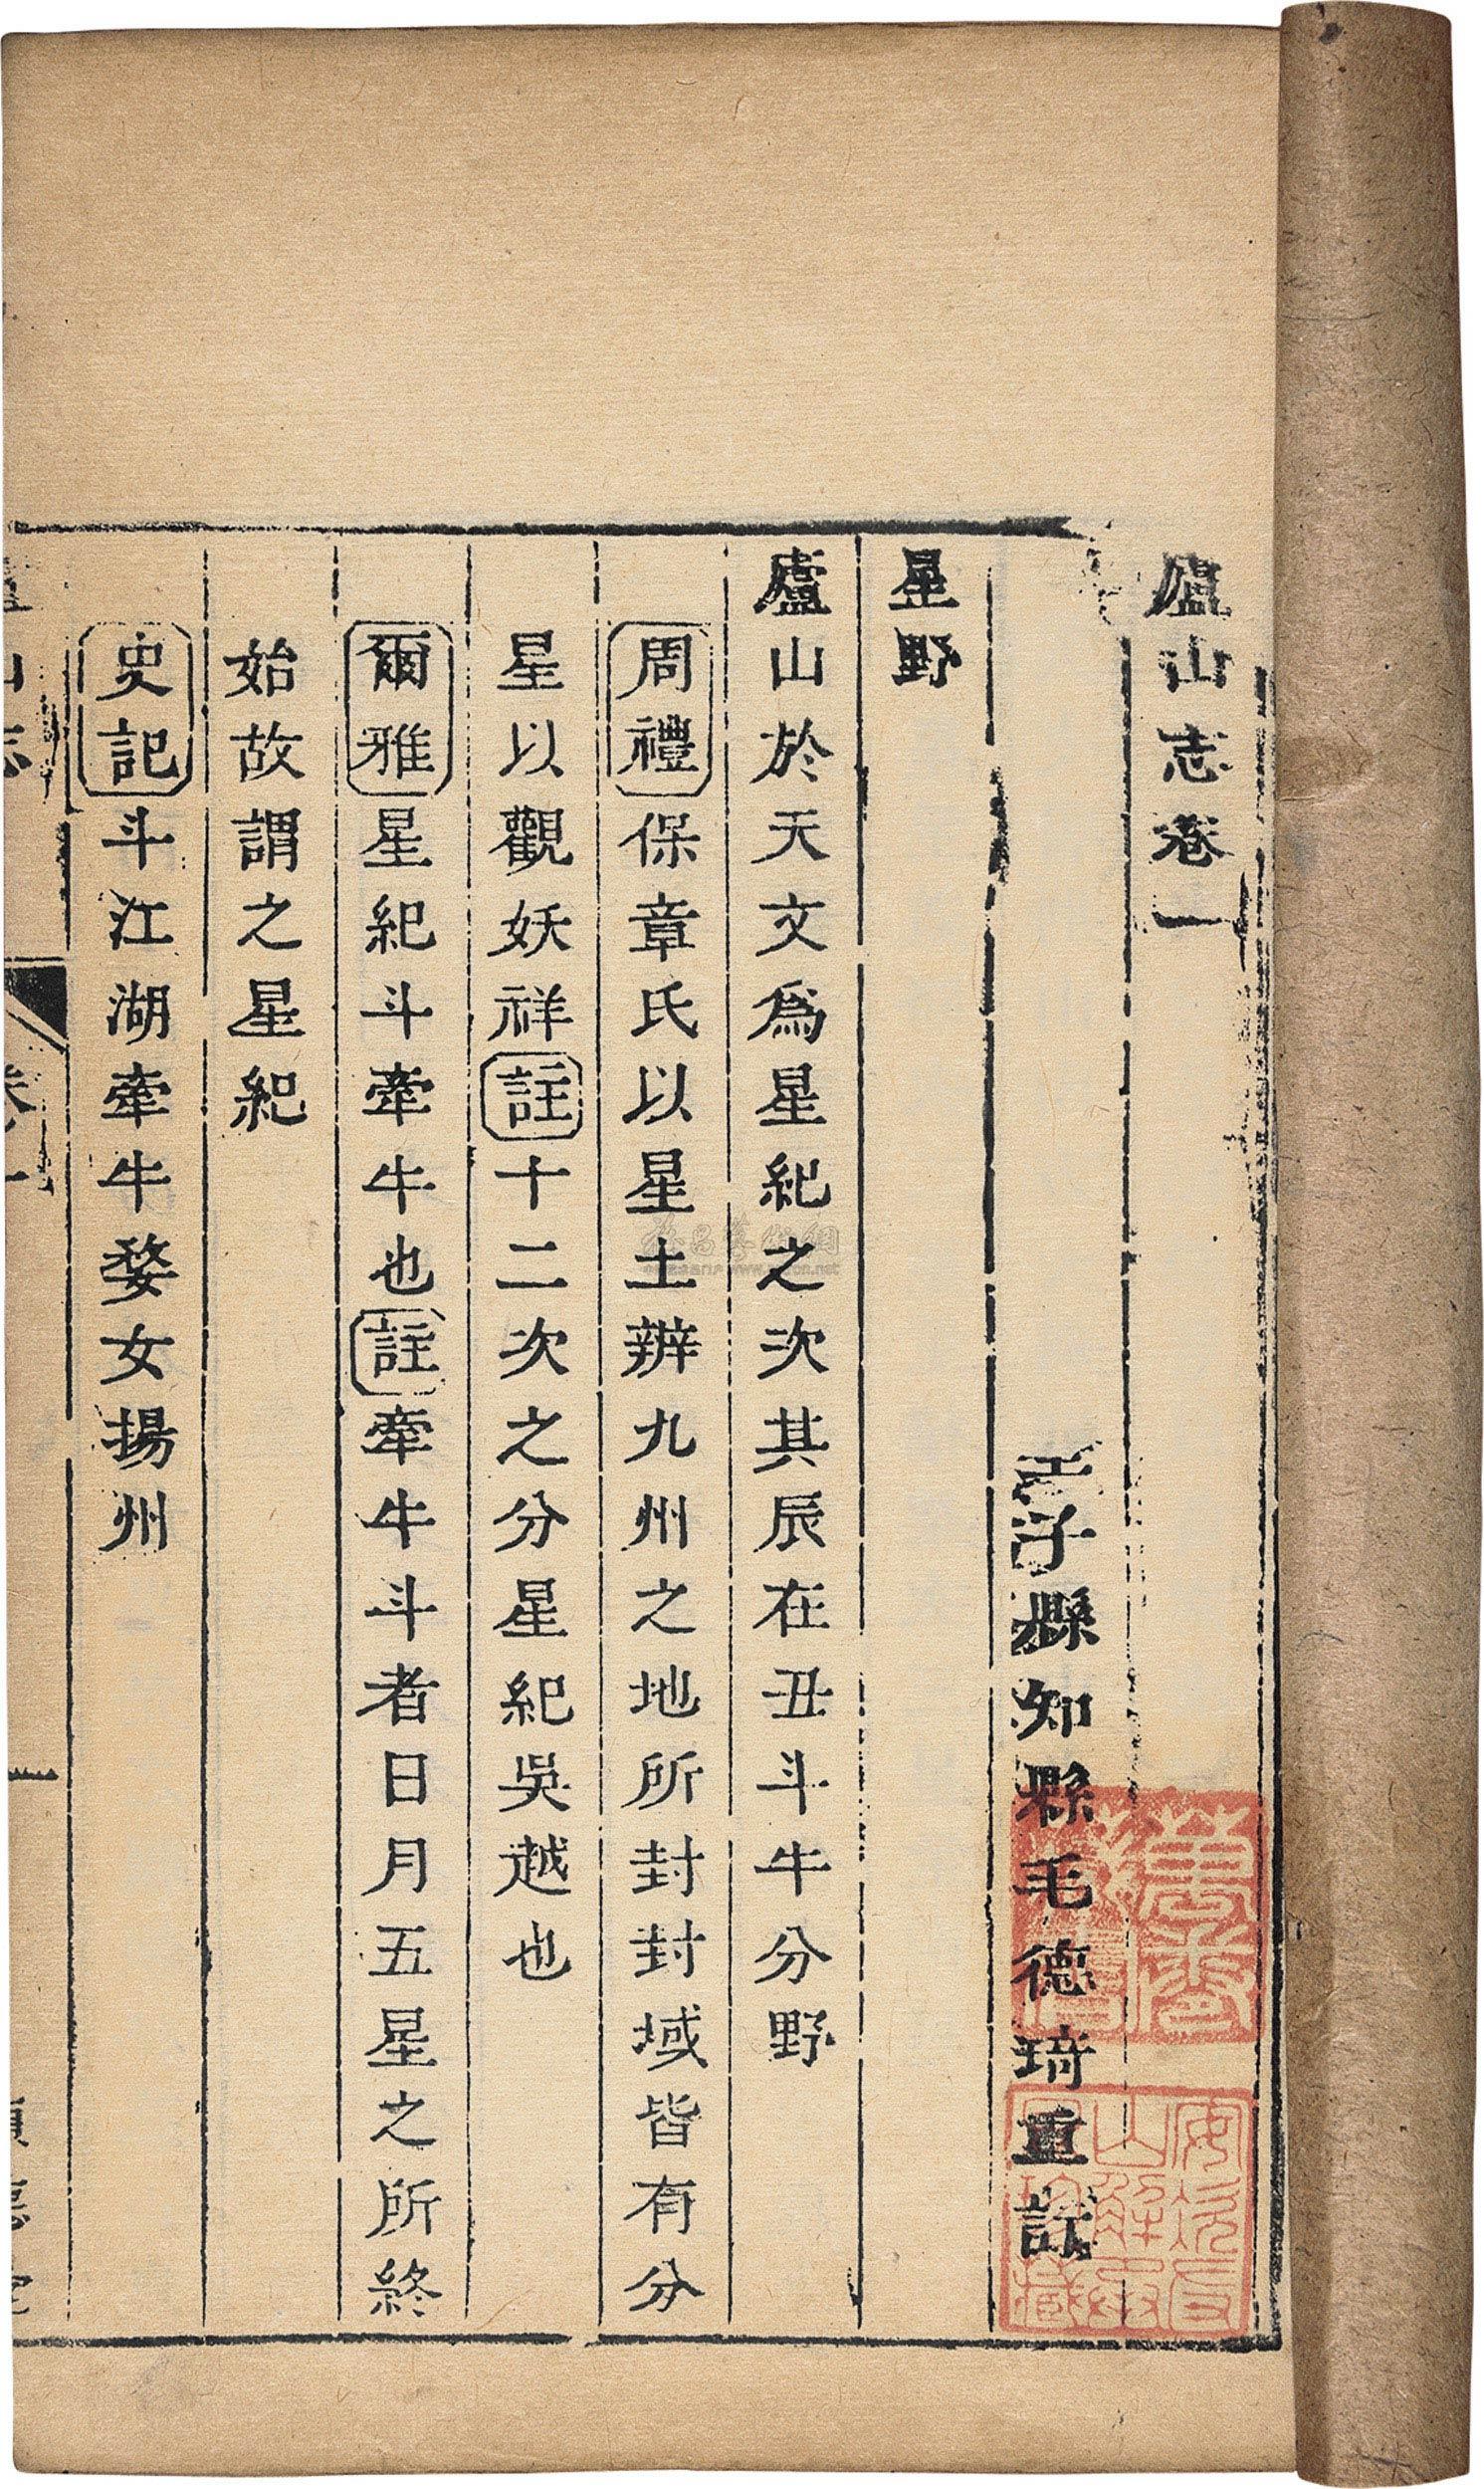 廬山志卷一
子縣知縣毛德琦重訂
星野
廬山於天文爲星紀之次其辰在丑斗牛分野
周禮保章氏以星土辨九州之地所封封域皆有分
星以觀妖祥註十二次之分星紀吳越也
爾雅星紀斗牽牛也註牽牛斗者日月五星之所終
始故謂之星紀
史記斗江湖牽牛婺女揚州
山志
卷一
一